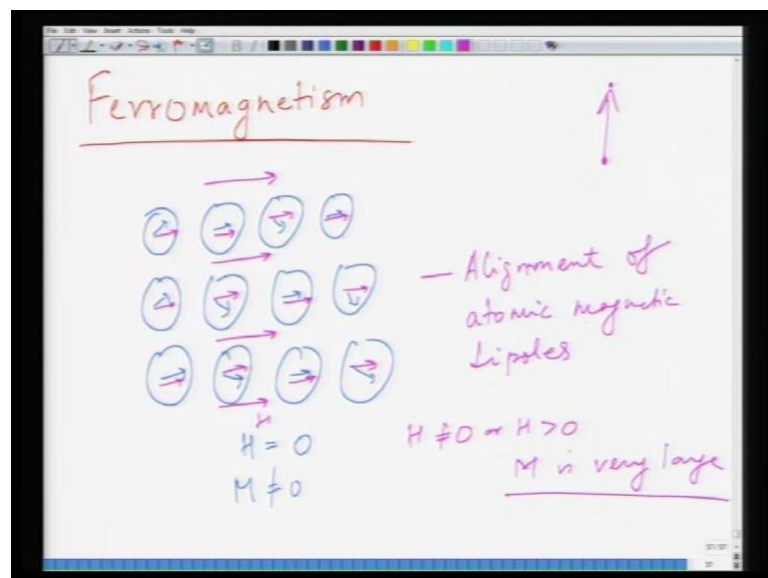 File Edit View Insert Actions Tools Help
B I
Ferromagnetism
— Alignment of
atomic magnetic
dipoles
H
H = 0
M ≠ 0
H ≠ 0 or H > 0
M is very large
57/57
57